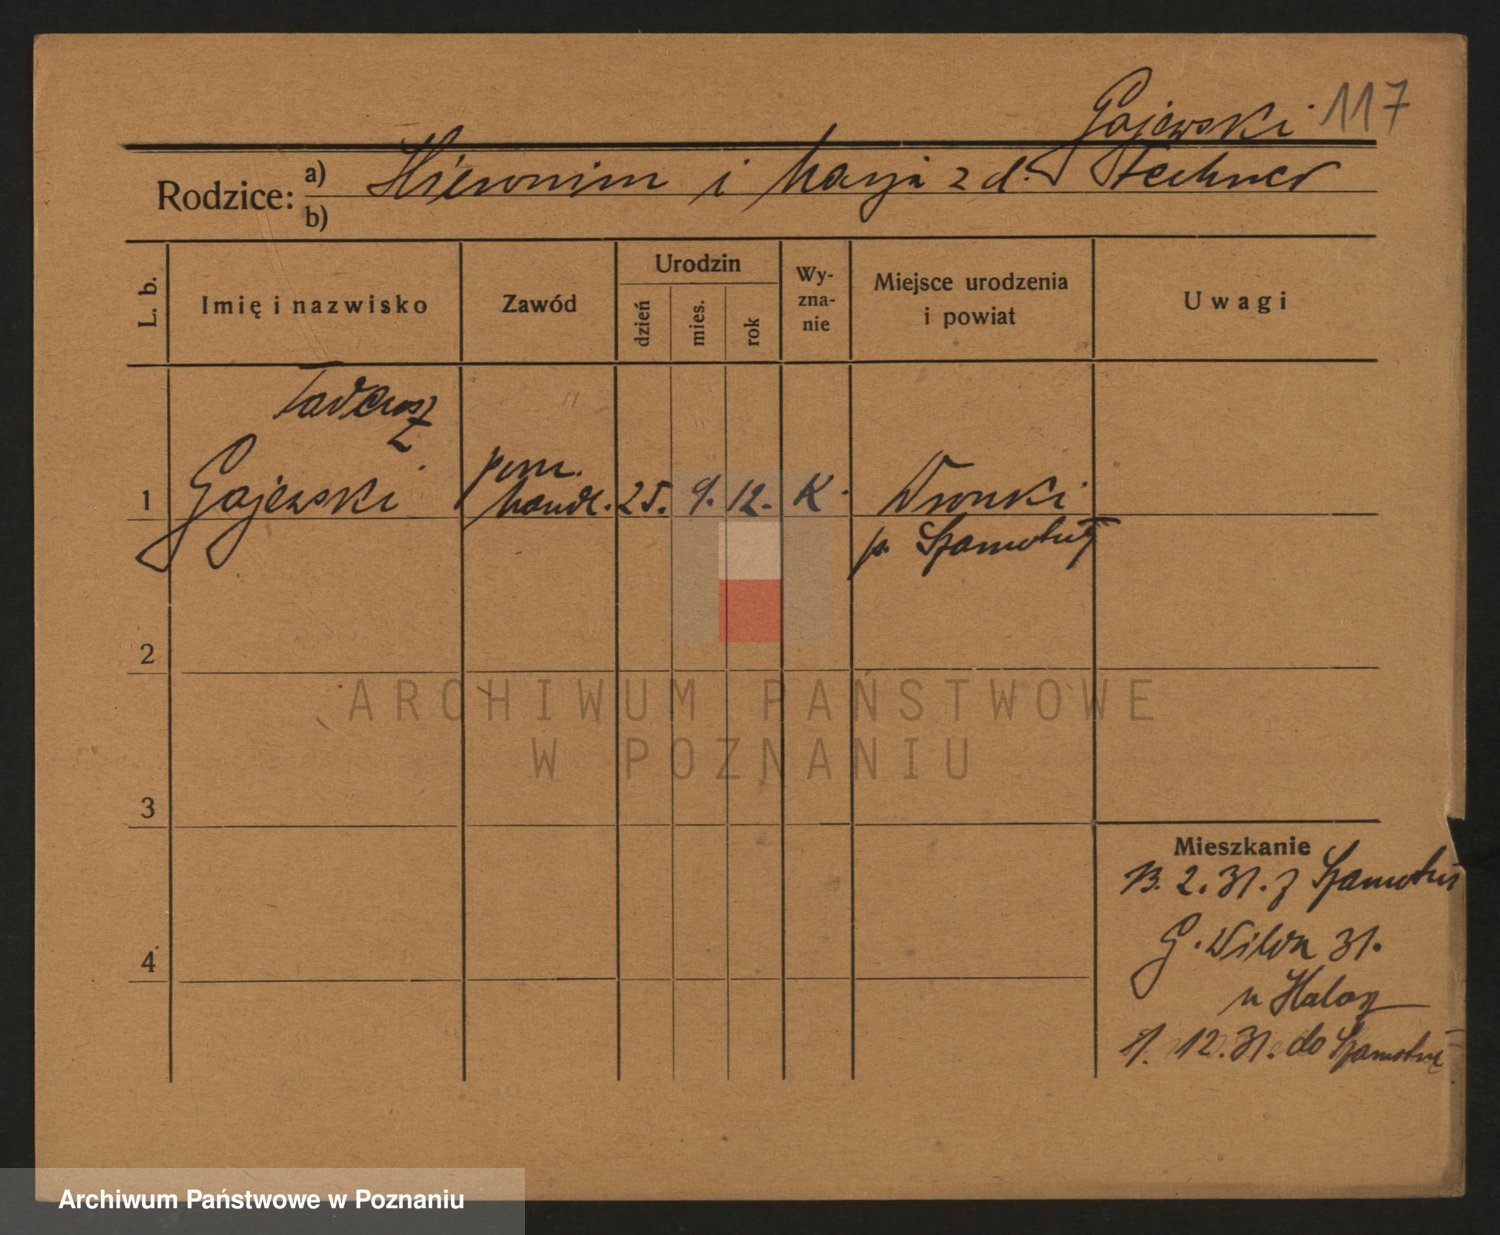 Gajewski 117
Rodzice: a) Hieronim i Marja z d. Techner
b)
L. b. Imię i nazwisko Zawód Urodzin dzień mies. rok Wy-zna-nie Miejsce urodzenia i powiat Uwagi
Tadeusz
1 Gajewski pom. handl. 25. 9. 12. K. Wronki
p. Szamotuły
2
ARCHIWUM PAŃSTWOWE
W POZNANIU
3
Mieszkanie
13. 2. 31. z Szamotuł
G. Wilda 31.
u
4
1. 12. 31. do Szamotuł
Archiwum Państwowe w Poznaniu